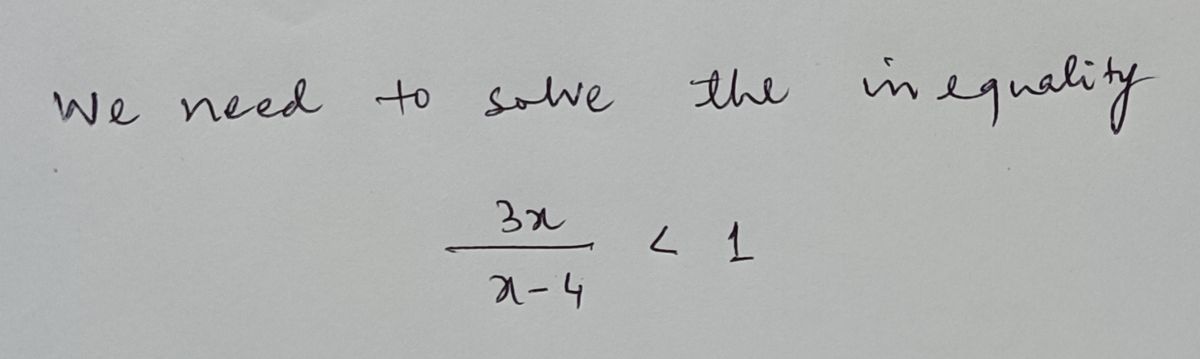 We need to solve the inequality
3x
x-4
< 1